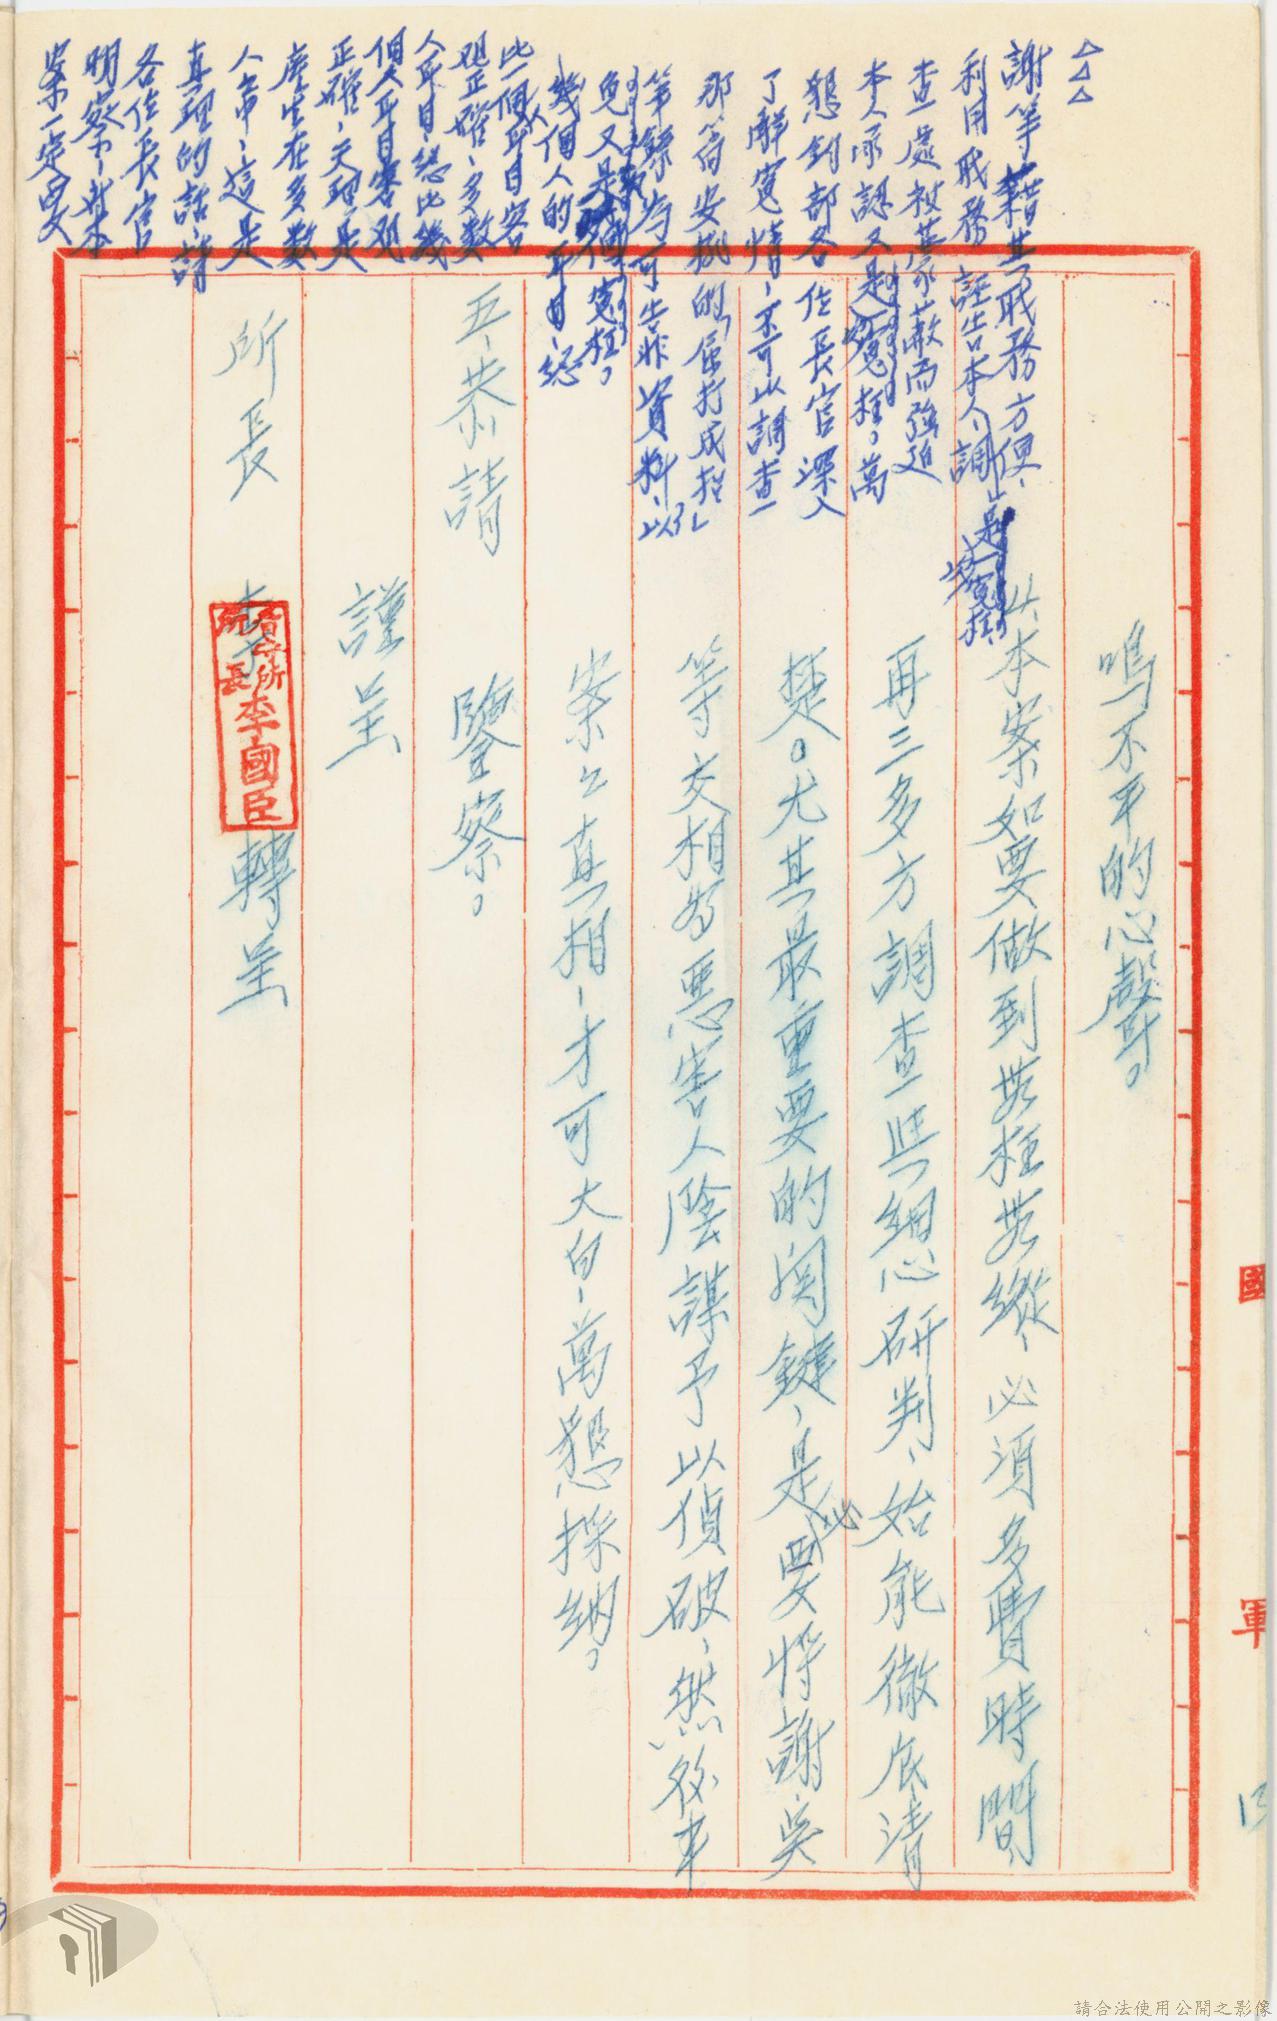 鳴不平的心聲。
4、本案如要做到毋枉毋縱、必須多費時間
再三多方調查與細心研判、始能徹底清
楚。尤其最重要的関鍵、是必要將謝、吳
等交相為惡害人陰謀予以偵破、然後本
案之真相、才可大白、萬懇採納。
五、恭請
鑒察。
謹呈
所長
看守所所長李國臣
轉呈
△△△
謝等藉其職務方便、
利用職務誣告本人、調
查處被其蒙蔽而強迫
本人承認又是冤枉。萬
懇鈞部各位長官深入
了解冤情、不可以調查
那等安排的屈打成招
筆錄為可告非資料、以
免又是冤枉。
幾個人的耳目、總
比一個耳目客
觀正確、多數
人耳目總比幾
個人耳目客觀
正確、天理是
產生在多數
人當中、這是
真理的話、請
各位長官
明察、此本
案一定要
國
軍
13
請合法使用公開之影像